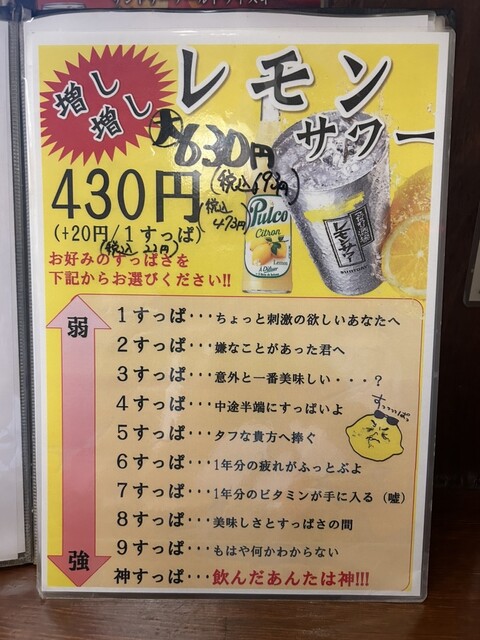 増し
増し
レモン
サワー
大630円
(税込693円)
430円
税込473円
(+20円/1すっぱ)
(税込22円)
お好みのすっぱさを
下記からお選びください!!
Pulco
Citron
Lemon
レモンサワー
SUNTORY
弱
1すっぱ・・・ちょっと刺激の欲しいあなたへ
2すっぱ・・・嫌なことがあった君へ
3すっぱ・・・意外と一番美味しい・・・?
4すっぱ・・・中途半端にすっぱいよ
すっっっぱ。
5すっぱ・・・タフな貴方へ捧ぐ
6すっぱ・・・1年分の疲れがふっとぶよ
7すっぱ・・・1年分のビタミンが手に入る(嘘)
8すっぱ・・・美味しさとすっぱさの間
9すっぱ・・・もはや何かわからない
強
神すっぱ・・・飲んだあんたは神!!!